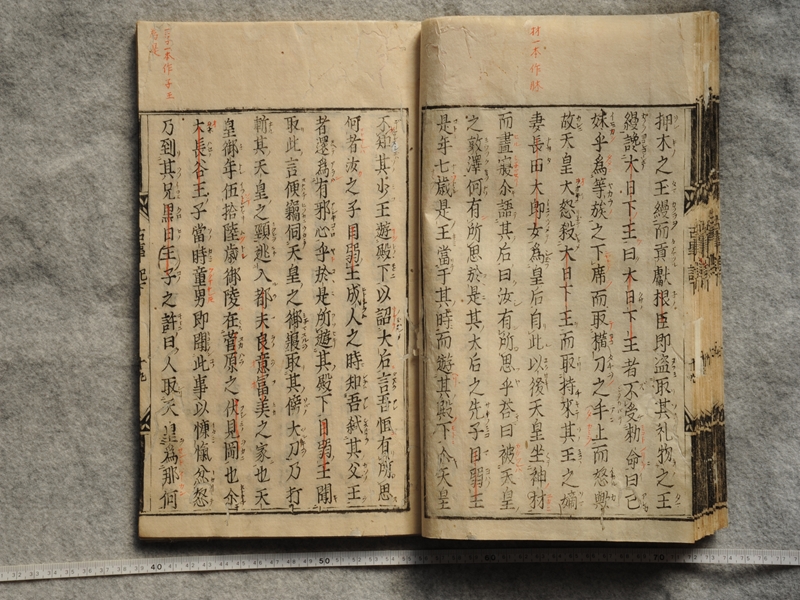 材一本作牀
押木之玉縵而貢獻根臣即盗取其礼物之玉
縵讒大日下王曰大日下王者不受勅命曰己
妹乎為等族之下席而取横刀之手上而怒歟
故天皇大怒殺大日下王而取持來其王之嫡
妻長田大郎女為皇后自此以後天皇坐神材
而晝寢尒語其后曰汝有所思乎荅曰被天皇
之敦澤何有所思於是其大后之先子目弱王
是年七歳是王當于其時而遊其殿下尒天皇
不知其少王遊殿下以詔大后言吾恒有所思
何者汝之子目弱王成人之時知吾弑其父王
者還為有邪心乎於是所遊其殿下目弱王聞
取此言便竊伺天皇之御寢取其傍大刀乃打
斬其天皇之頸逃入都夫良意富美之家也天
皇御年伍拾陸歳御陵在菅原之伏見岡也尒
大長谷王子當時童男即聞此事以慷愾忿怒
乃到其兄黒日王子之許曰人取天皇為那何
古事記
十九